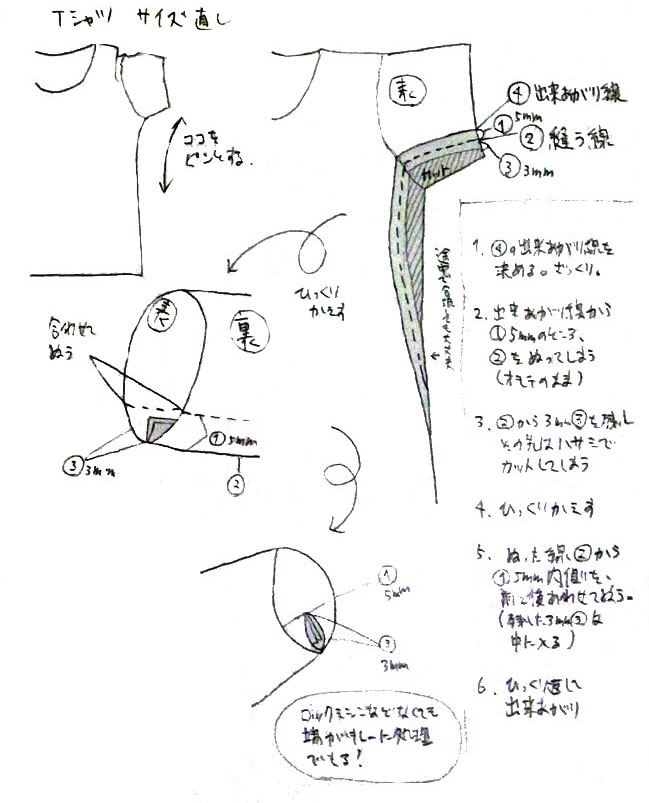 Tシャツ サイズ直し
ココを
ピンとする。
表
④ 出来あがり線
① 5mm
② 縫う線
③ 3mm
カット
ひっくり
かえす
合わせて
ぬう
表
裏
① 5mm
③ 3mm
②
① 5mm
③ 3mm
1. ④の出来あがり線を
決める。ざっくり。
2. 出来あがり線から
① 5mmのところ、
②をぬってしまう
(オモテのまま)
3. ②から3mm③を残し
その先はハサミで
カットしてしまう
4. ひっくりかえす
5. ぬった線②から
① 5mm内側を、
合わせてぬう。
(残した3mm③は
中に入る)
6. ひっくり返して
出来あがり
ロックミシンなどなくても
端がキレーに処理
できる!